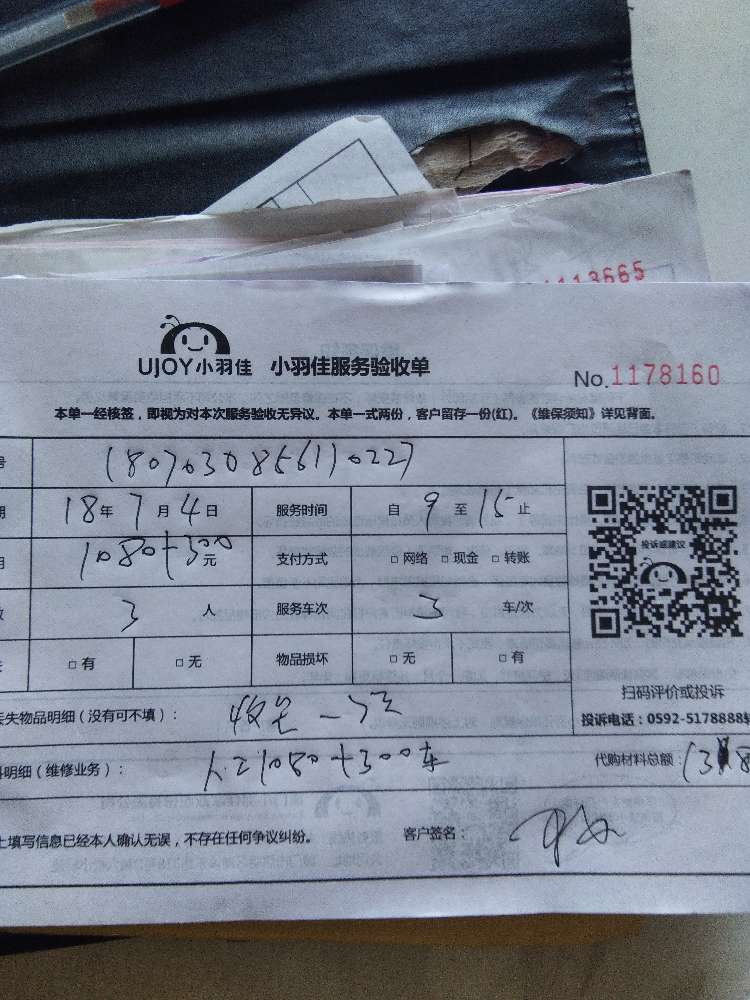 113665
UJOY小羽佳 小羽佳服务验收单
No.1178160
本单一经核签，即视为对本次服务验收无异议。本单一式两份，客户留存一份(红)。《维保须知》详见背面。
号 1807030856110227
期 18年7月4日 服务时间 自9至15止
用 1080+300元 支付方式 □网络 □现金 □转账
数 3人 服务车次 3 车/次
□有 □无 物品损坏 □无 □有
投诉或建议
扫码评价或投诉
丢失物品明细（没有可不填）：
投诉电话：0592-5178888转
料明细（维修业务）： 人工1080+300车
代购材料总额：
上填写信息已经本人确认无误，不存在任何争议纠纷。 客户签名：